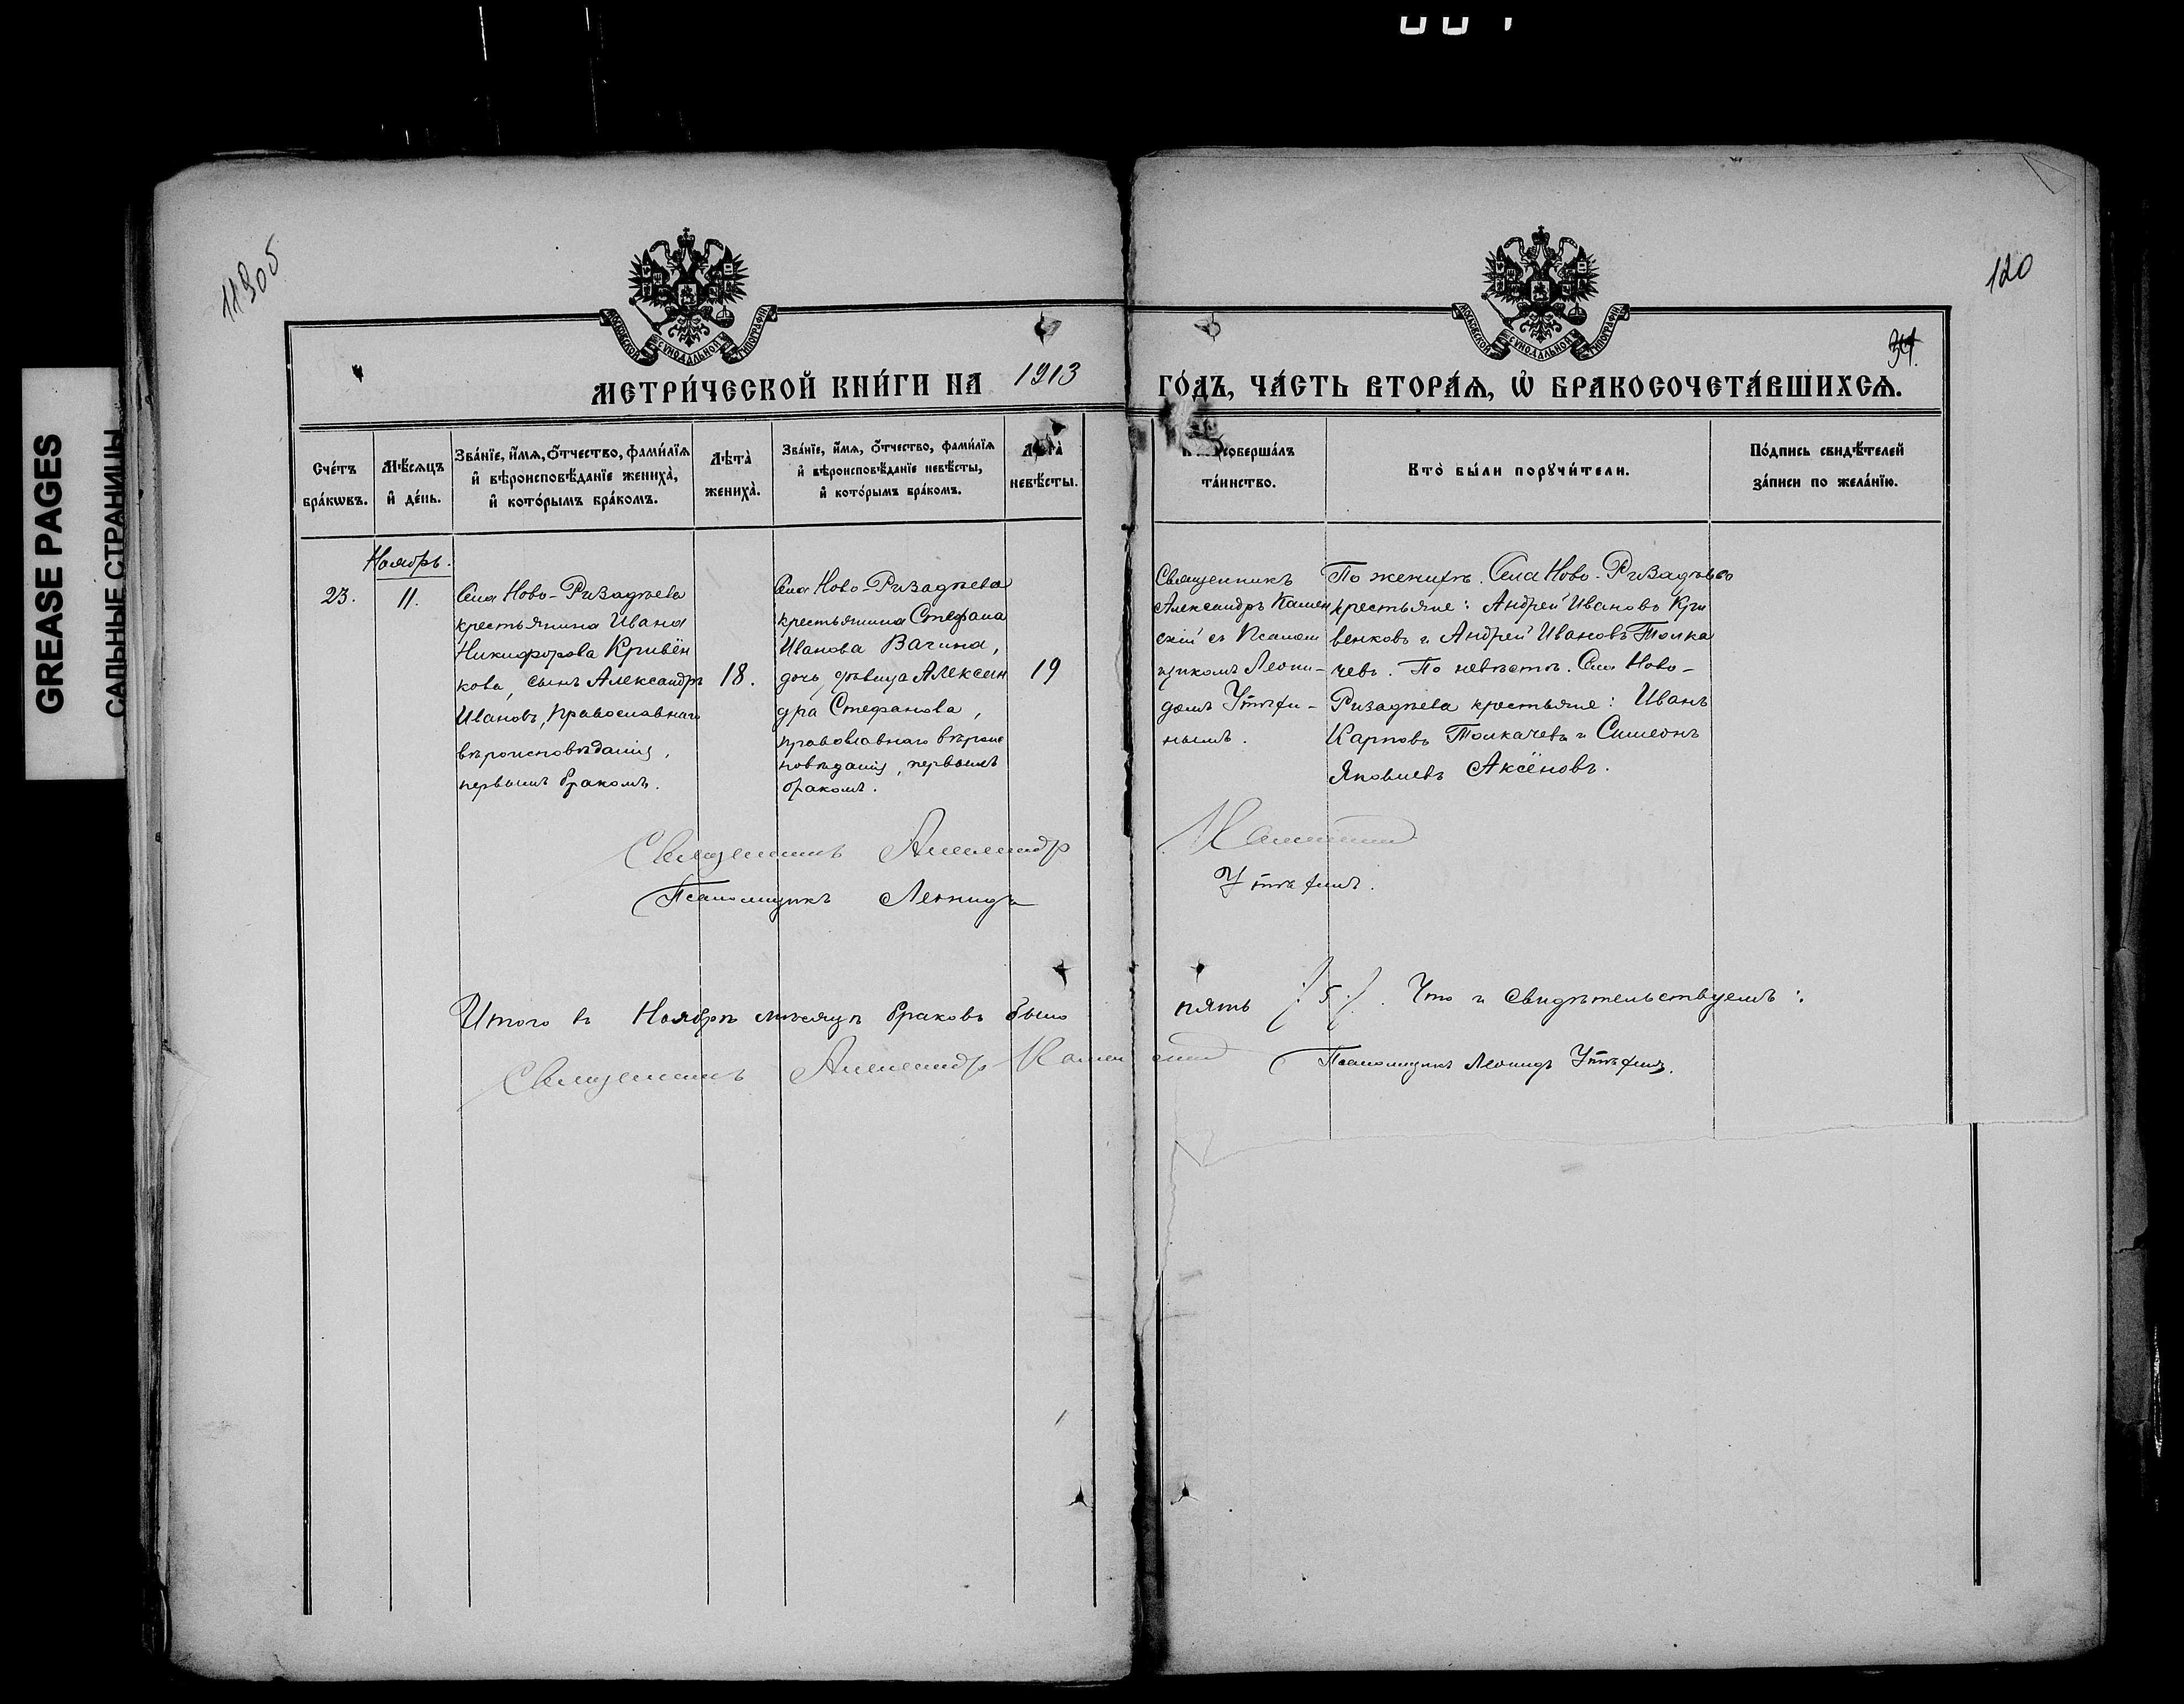 GREASE PAGES
САЛЬНЫЕ СТРАНИЦЫ
11905
120
МОСКОВСКОЙ СѴНОДАЛЬНОЙ ТИПОГРАФІИ
МОСКОВСКОЙ СѴНОДАЛЬНОЙ ТИПОГРАФІИ
МЕТРИ́ЧЕСКОЙ КНИ́ГИ НА 1913 ГО́ДЪ, ЧА́СТЬ ВТОРА́Ѧ, Ѡ БРАКОСОЧЕТА́ВШИХСѦ.
Сче́тъ
бра́кѡвъ.
Мѣ́сѧцъ
и де́нь.
Зва́нїе, и́мѧ, о́тчество, фами́лїѧ
и вѣроисповѣ́данїе жениха̀,
и кото́рымъ бра́комъ.
Лѣта̀
жениха̀.
Зва́нїе, и́мѧ, о́тчество, фами́лїѧ
и вѣроисповѣ́данїе невѣ́сты,
и кото́рымъ бра́комъ.
Лѣта̀
невѣ́сты.
совершáлъ
та́инство.
Кто̀ бы́ли порꙋчи́тели.
По́дпись свидѣ́телей
за́писи по жела́нїю.
Ноябрь.
23.
11.
Села Ново-Ризадѣева
крестьянина Ивана
Никифорова Кривён
кова, сынъ Александръ
Ивановъ, православнаго
вѣроисповѣданія,
первымъ бракомъ.
18.
Села Ново-Ризадѣева
крестьянина Стефана
Иванова Вагина,
дочь, дѣвица Алексан
дра Стефанова,
православнаго вѣроис
повѣданія, первымъ
бракомъ.
19
Священникъ
Александръ Камен
скій съ Псалом
щикомъ Леони-
домъ Утѣхи-
нымъ.
По женихѣ. Села Ново-Ризадѣево
крестьяне: Андрей Ивановъ Кри
венковъ и Андрей Ивановъ Толка
чевъ. По невѣстѣ. Села Ново-
Ризадѣева крестьяне: Иванъ
Карповъ Толкачевъ и Симеонъ
Яковлевъ Аксёновъ.
Священникъ Александр Каменский
Псаломщикъ Леонидъ Утѣхинъ.
Итого въ Ноябрѣ мѣсяцѣ браковъ было пять /:5:/. Что и свидѣтельствуемъ:
Священникъ Александр Каменский Псаломщикъ Леонидъ Утѣхинъ.